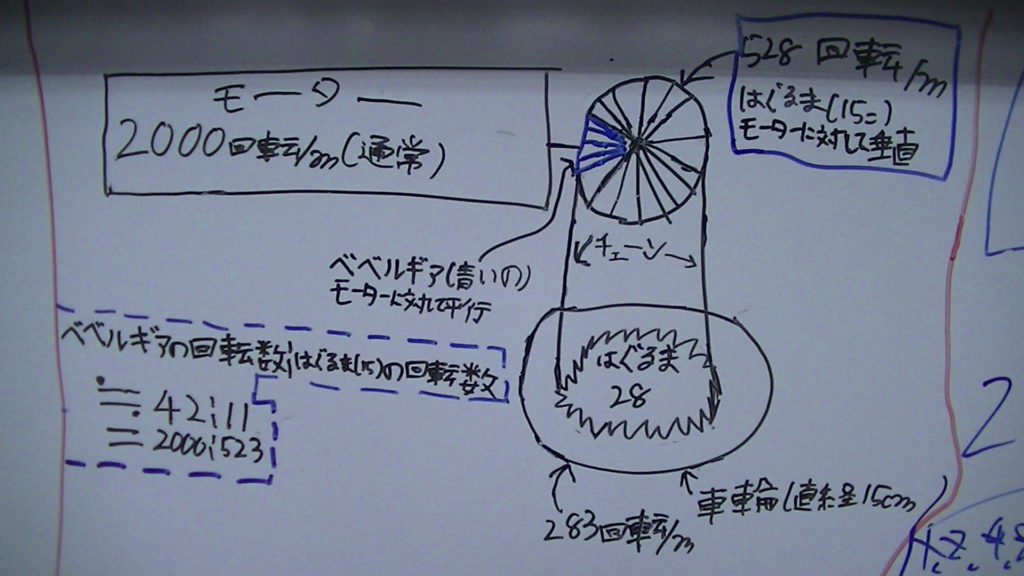 モーター
2000回転/m(通常)
528回転/m
はぐるま(15こ)
モーターに対して垂直
チェーン
ベベルギア(青いの)
モーターに対して平行
ベベルギアの回転数:はぐるま(15)の回転数
≒ 42:11
= 2000:523
はぐるま
28
283回転/m
車輪(直径15cm)
2